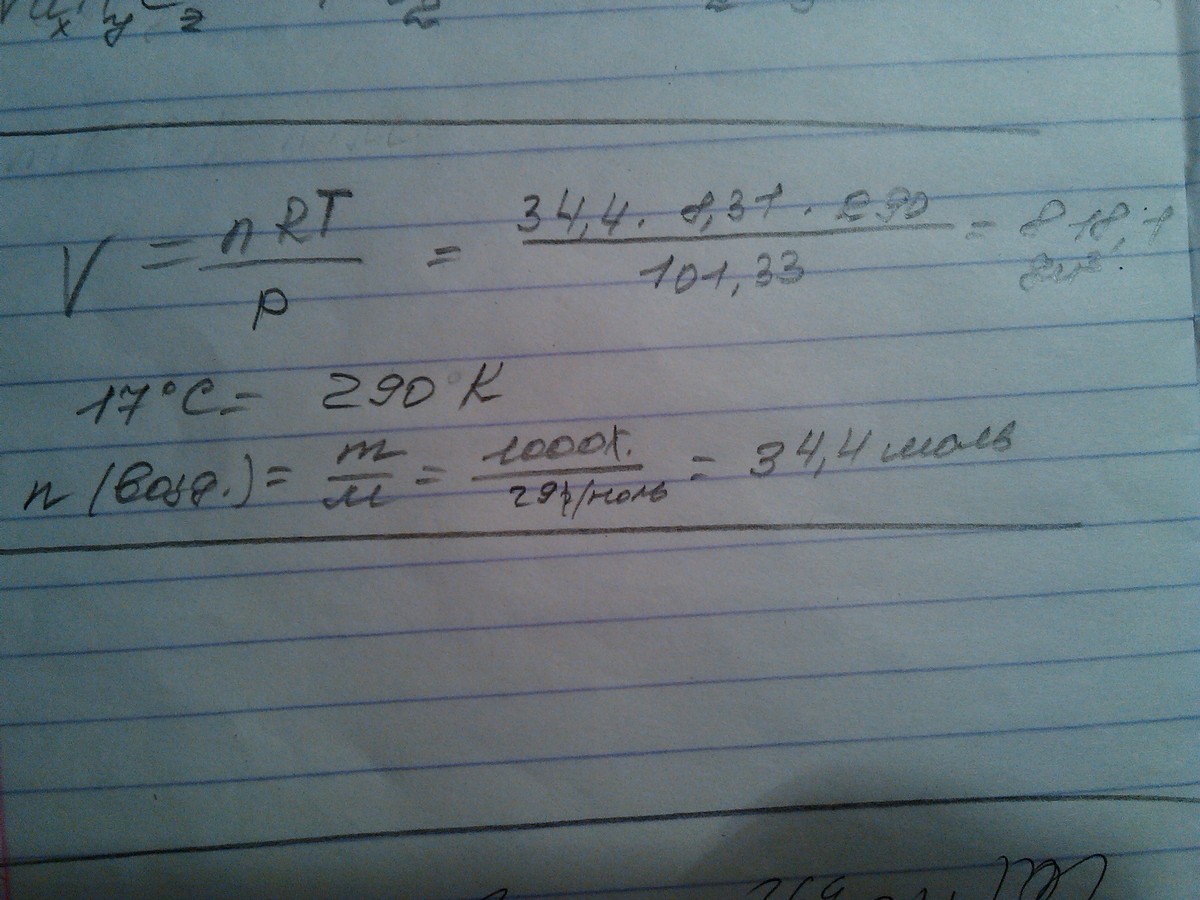 x y z 2
V = nRT / p = 34,4 · 8,31 · 290 / 101,33 = 818,1 дм³
17°C = 290°K
n (возд.) = m / M = 1000г. / 29г/моль = 34,4 моль